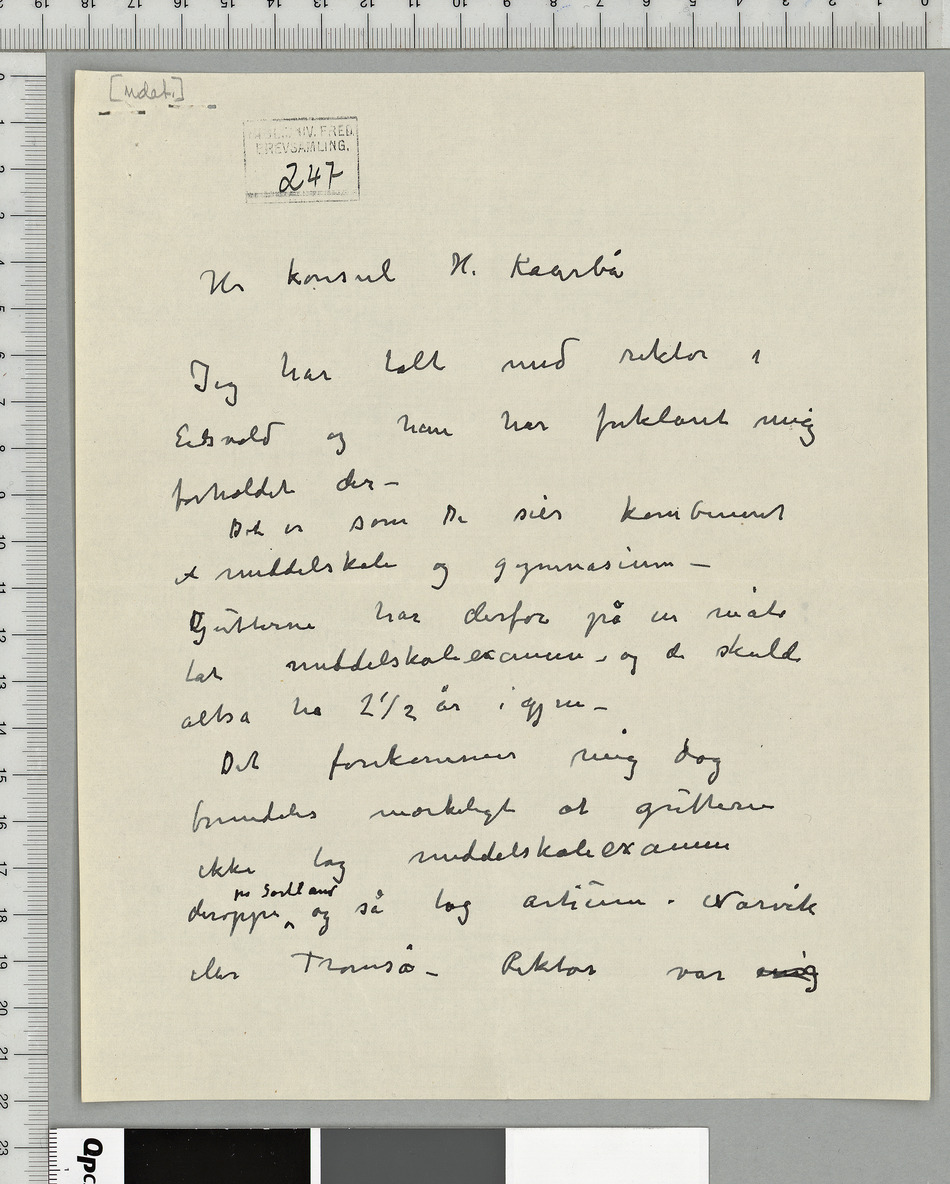 [udat.]
BREVSAMLING.
247
Hr konsul H. Kaarbø
Jeg har talt med rektor i
Eidsvold og han har forklaret mig
forholdet der –
Det er som De sier kombineret
middelskole og gymnasium –
Gutterne har derfor på en måte
tat middelskoleexamen – og de skulde
altså ha 2 1/2 år i gym –
Det forekommer mig dog
fremdeles merkeligt at gutterne
ikke tog middelskoleexamen
på Sortland
deroppe og så tog artium i Narvik
eller Tromsø – Rektor var enig